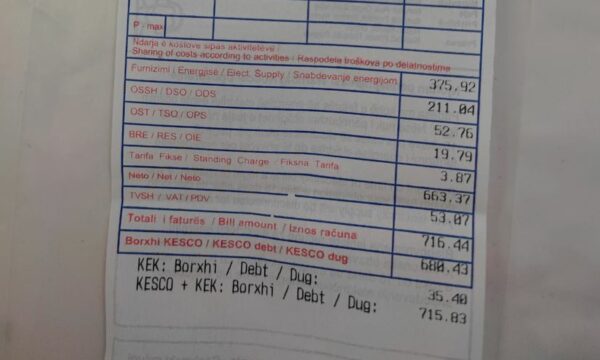 P - max
Ndarja e kostove sipas aktiviteteve /
Sharing of costs according to activities / Raspodela troškova po delatnostima
Furnizimi i Energjisë / Elect. Supply / Snabdevanje energijom 375.92
OSSH / DSO / ODS 211.04
OST / TSO / OPS 52.76
BRE / RES / OIE 19.79
Tarifa Fikse / Standing Charge / Fiksna Tarifa 3.87
Neto / Net / Neto 663.37
TVSH / VAT / PDV 53.07
Totali i faturës / Bill amount / Iznos računa 716.44
Borxhi KESCO / KESCO debt / KESCO dug 680.43
KEK: Borxhi / Debt / Dug: 35.40
KESCO + KEK: Borxhi / Debt / Dug: 715.83